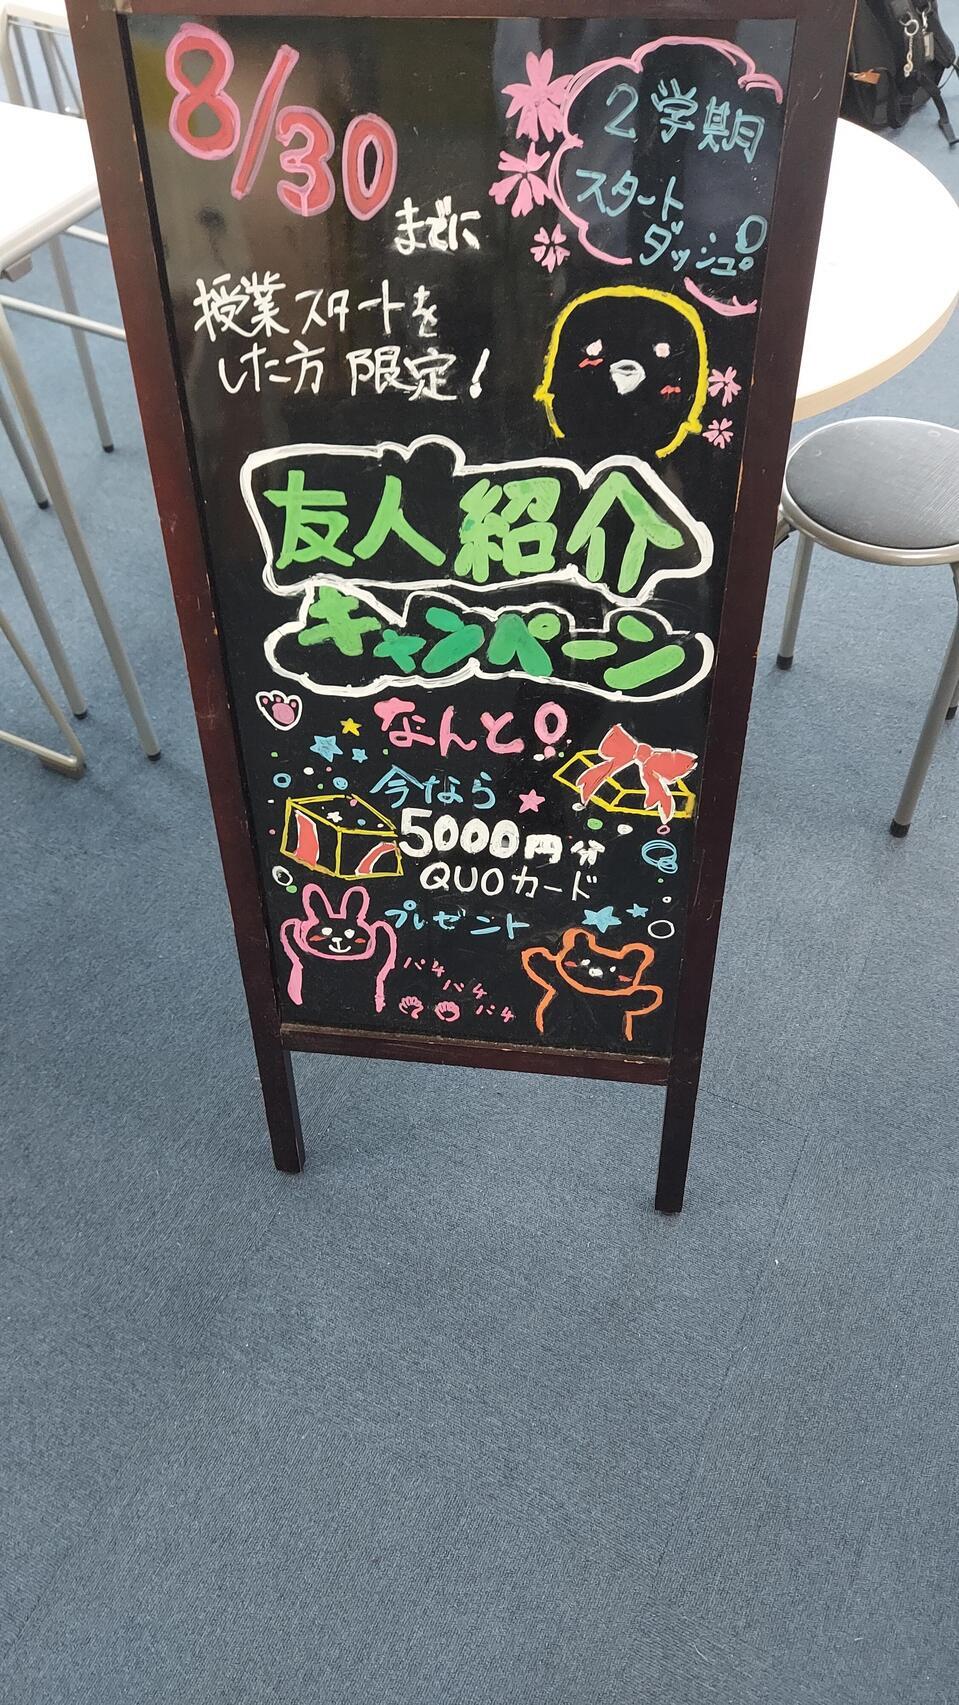 8/30
までに
2学期
スタート
ダッシュ!
授業スタートを
した方 限定!
友人紹介
キャンペーン
なんと!
今なら
5000円分
QUOカード
プレゼント
パチ
パチ
パチ